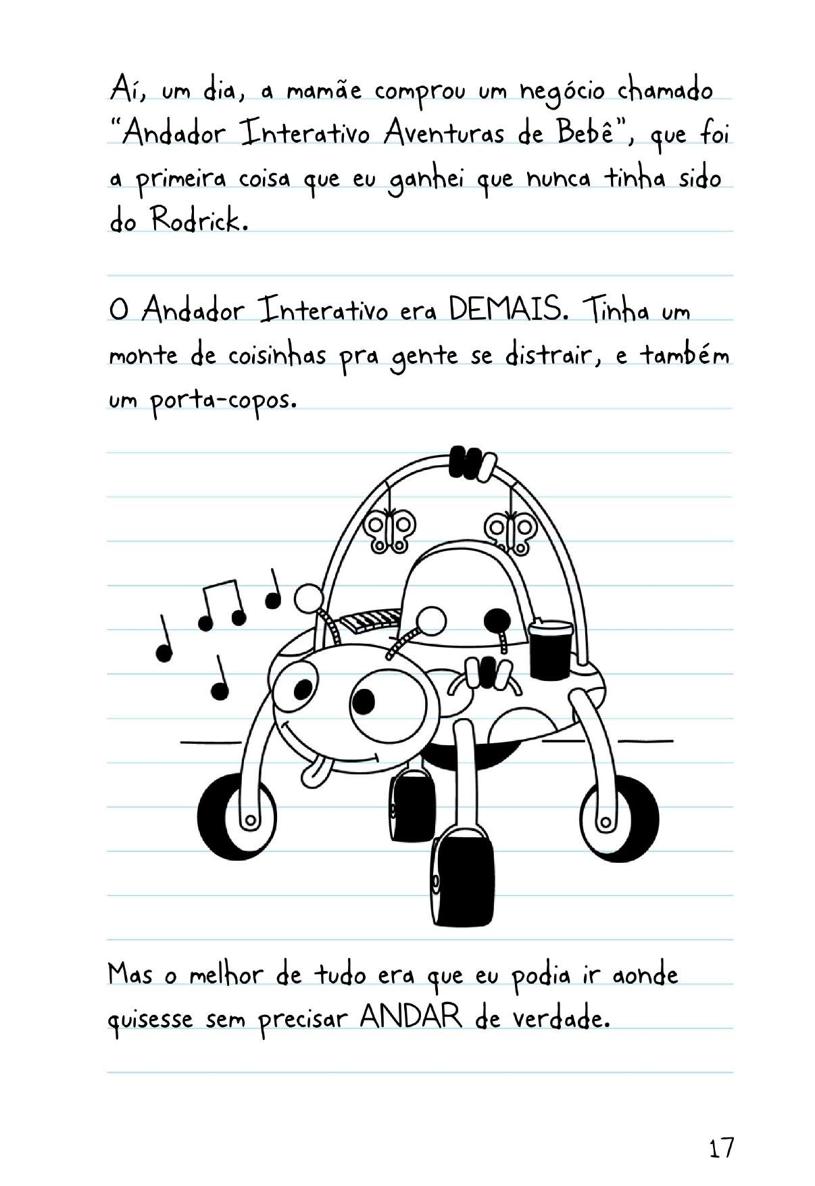 Aí, um dia, a mamãe comprou um negócio chamado
“Andador Interativo Aventuras de Bebê”, que foi
a primeira coisa que eu ganhei que nunca tinha sido
do Rodrick.
O Andador Interativo era DEMAIS. Tinha um
monte de coisinhas pra gente se distrair, e também
um porta-copos.
Mas o melhor de tudo era que eu podia ir aonde
quisesse sem precisar ANDAR de verdade.
17